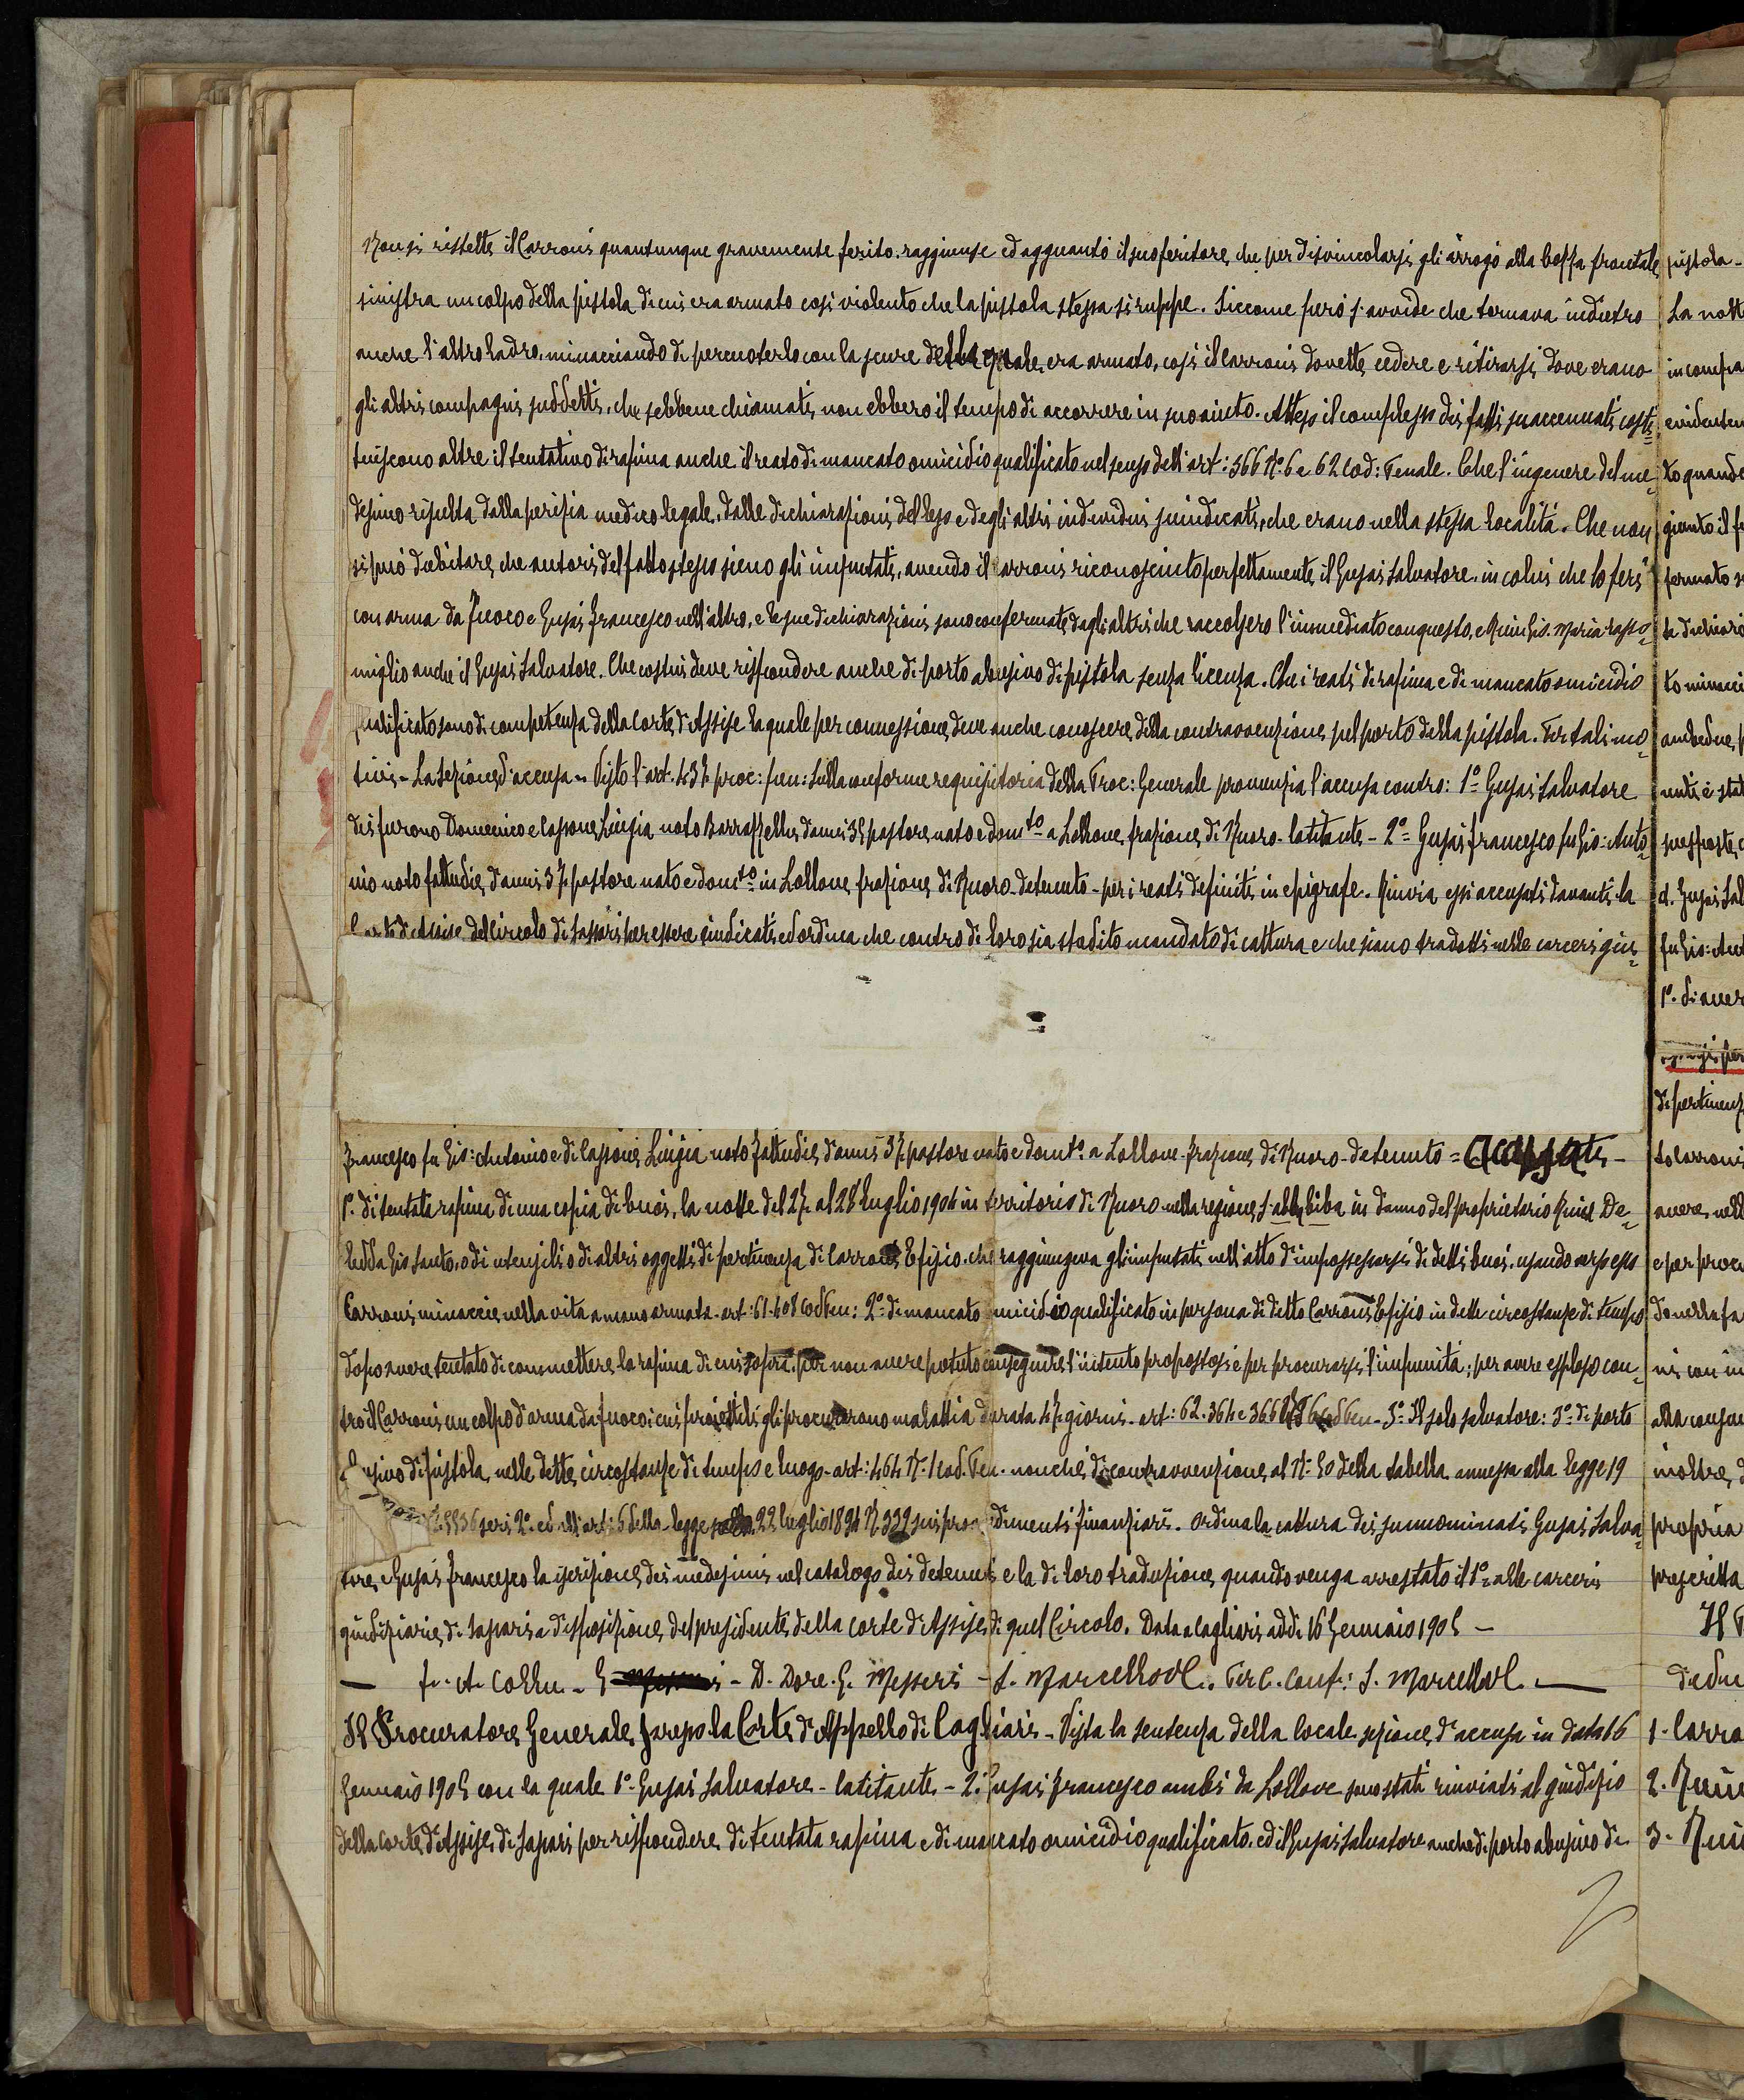 Non si ristette il Carronis quantunque gravemente ferito. raggiunse ed agguantò il suo feritore, che per disvincolarsi gli arrogò alla bossa frontale
sinistra un colpo della pistola di cui era armato così violento che la pistola stessa si ruppe. Siccome però s'avvide che tornava indietro
anche l'altro ladro, minacciando di percuoterlo con la scure della quale era armato, così il Carronis dovette cedere e ritirarsi dove erano
gli altri compagni suddetti, che sebbene chiamati non ebbero il tempo di accorrere in suo aiuto. Atteso il complesso dei fatti su accennati costi=
tuiscono altre il tentativo di rapina anche il reato di mancato omicidio qualificato nel senso dell'art: 366 N° 6 e 62 Cod: Penale. Che l'ingenere del me=
desimo risulta dalla perizia medico legale, dalle dichiarazioni dell'leso e degli altri individui suindicati, che erano nella stessa località. Che non
si può dubitare che autori del fatto stesso sieno gli imputati, avendo il Carronis riconosciuto perfettamente il Gusai Salvatore, in colui che lo ferì
con arma da fuoco e Gusai Francesco nell'altro, e le sue dichiarazioni sono confermate dagli altri che raccolsero l'immediato conquesto, e Ruiu Gio. Maria rasso=
miglio anche il Gusai Salvatore. Che costui deve rispondere anche di porto abusivo di pistola senza licenza. Che i reati di rapina e di mancato omicidio
qualificato sono di competenza della Corte d'Assise la quale per connessione deve anche conoscere della contravvenzione pel porto della pistola. Per tali mo=
tivi - La sezione d'accusa - Visto l'art. 437 proc: pen: sulla conforme requisitoria della Proc: Generale pronunzia l'accusa contro: 1° Gusai Salvatore
di furono Domenico e Cassone Luigia noto Barrazzellu d'anni 35 pastore nato e dom.to a Lollove, frazione di Nuoro - latitante - 2° Gusai Francesco fu Gio: Anto=
nio noto fattudie, d'anni 37 pastore nato e dom.to in Lollove frazione di Nuoro - detenuto - per i reati definiti in epigrafe. Rinvia essi accusati davanti la
Corte di Assise del circolo di Sassari per essere giudicati ed ordina che contro di loro sia spedito mandato di cattura e che siano tradotti nelle carceri giu=
Francesco fu Gio: Antonio e di Cassone Luigia noto fattudie d'anni 37 pastore nato e dom.to a Lollove - frazione di Nuoro - detenuto = Accusati -
1° di tentata rapina di una copia di buoi, la notte del 27 al 28 luglio 1904 in territorio di Nuoro nella regione s'abba biba in danno del proprietario Ruiu De=
ledda Gio Santo, o di utensili o di altri oggetti di pertinenza di Carronis Efisio, che raggiungeva gli imputati nell'atto d'impossessarsi di detti buoi, usando verso esso
Carronis minaccie nella vita a mano armata - art: 61-408 Cod Pen: 2° di mancato omicidio qualificato in persona di detto Carronis Efisio in dette circostanze di tempo
dopo avere tentato di commettere la rapina di cui sopra, per non avere potuto conseguire l'intento propostosi e per procurarsi l'impunità, per avere esploso con=
tro il Carronis un colpo d'arma da fuoco i cui proiettili gli procurarono malattia durata 47 giorni - art: 62. 364 e 366 N° 6 Cod Pen - 3° Il solo Salvatore: 3° di porto
abusivo di pistola, nelle dette circostanze di tempo e luogo - art: 464 N° 1 Cod. Pen. nonché di contravvenzione al N° 50 della tabella annessa alla legge 19
serie 2° ed all'art: 6 della legge 22 luglio 1894 N. 339 sui provvedimenti finanziari. Ordina la cattura dei sunnominati Gusai Salva=
tore e Gusai Francesco la iscrizione dei medesimi nel catalogo dei detenuti e la di loro traduzione, quando venga arrestato il 1° alle carceri
giudiziarie di Sassari a disposizione del presidente della corte di Assise di quel Circolo. Data a Cagliari addì 16 Gennaio 1905 -
- D. Dore. G. Messeri - S. Marcello - Per C. Conf: S. Marcello
Il Procuratore Generale presso la Corte di Appello di Cagliari - Vista la sentenza della locale sezione d'accusa in data 16
Gennaio 1905 con la quale 1° Gusai Salvatore - latitante - 2° Gusai Francesco ambi da Lollove sono stati rinviati al giudizio
della Corte d'Assise di Sassari per rispondere di tentata rapina e di mancato omicidio qualificato, ed il Gusai Salvatore anche di porto abusivo di
pistola -
La nott
in compa
evidentem
to quando
giunto il f
fermato s
te dichiaro
to minacci
ambedue, p
nuti, è stat
d. Gusai Sal
fu Gio: Ant
1° di aver
di pertinenz
to Carronis
avere nell
e per procu
inoltre, d
propria
prescritta
Il P
1. Carro
2. Ruiu
3. Rui